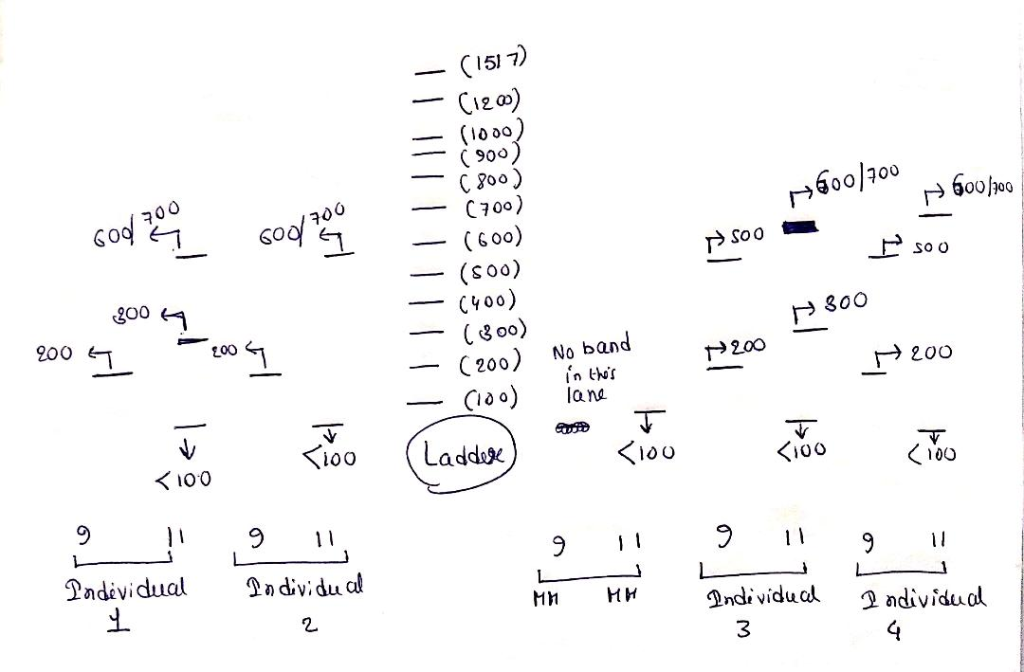 (1517)
(1200)
(1000)
(900)
(800)
(700)
(600)
(500)
(400)
(300)
(200)
(100)
Ladder
600/700
300
200
<100
9 11
Individual
1
600/700
200
<100
9 11
Individual
2
No band
in this
lane
<100
9 11
MM MM
500
600/700
200
300
<100
9 11
Individual
3
600/700
500
200
<100
9 11
Individual
4